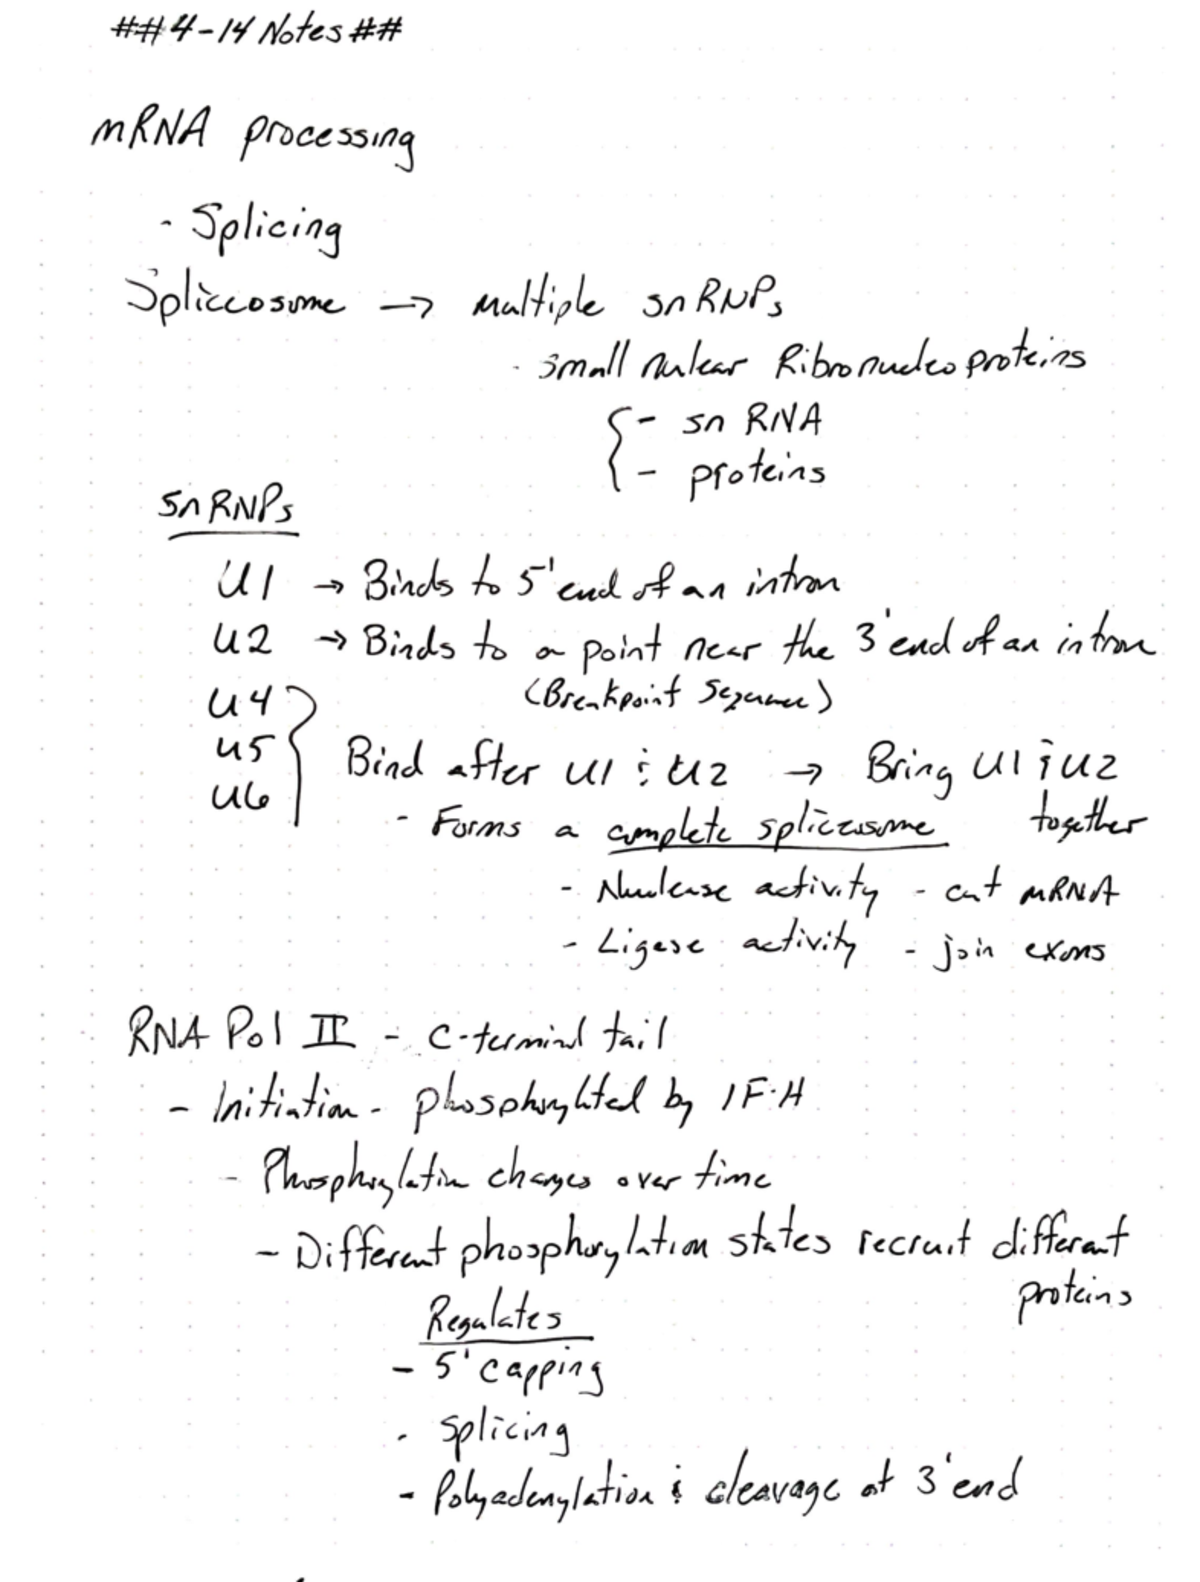 ##4-14 Notes##
mRNA processing
- Splicing
Spliceosome → multiple snRNPs
- small nulear Ribronucleoproteins
- sn RNA
- proteins
snRNPs
U1 → Binds to 5' end of an intron
U2 → Binds to a point near the 3' end of an intron
(Breakpoint Sequence)
U4
U5
U6
Bind after U1 & U2 → Bring U1 & U2
together
- Forms a complete spliceosome
- Nuclease activity - cut mRNA
- Ligase activity - join exons
RNA Pol II - C-terminal tail
- Initiation - phosphorylated by TF·H
- Phosphorylation changes over time
- Different phosphorylation states recruit different
proteins
Regulates
- 5' capping
- splicing
- Polyadenylation & cleavage at 3' end